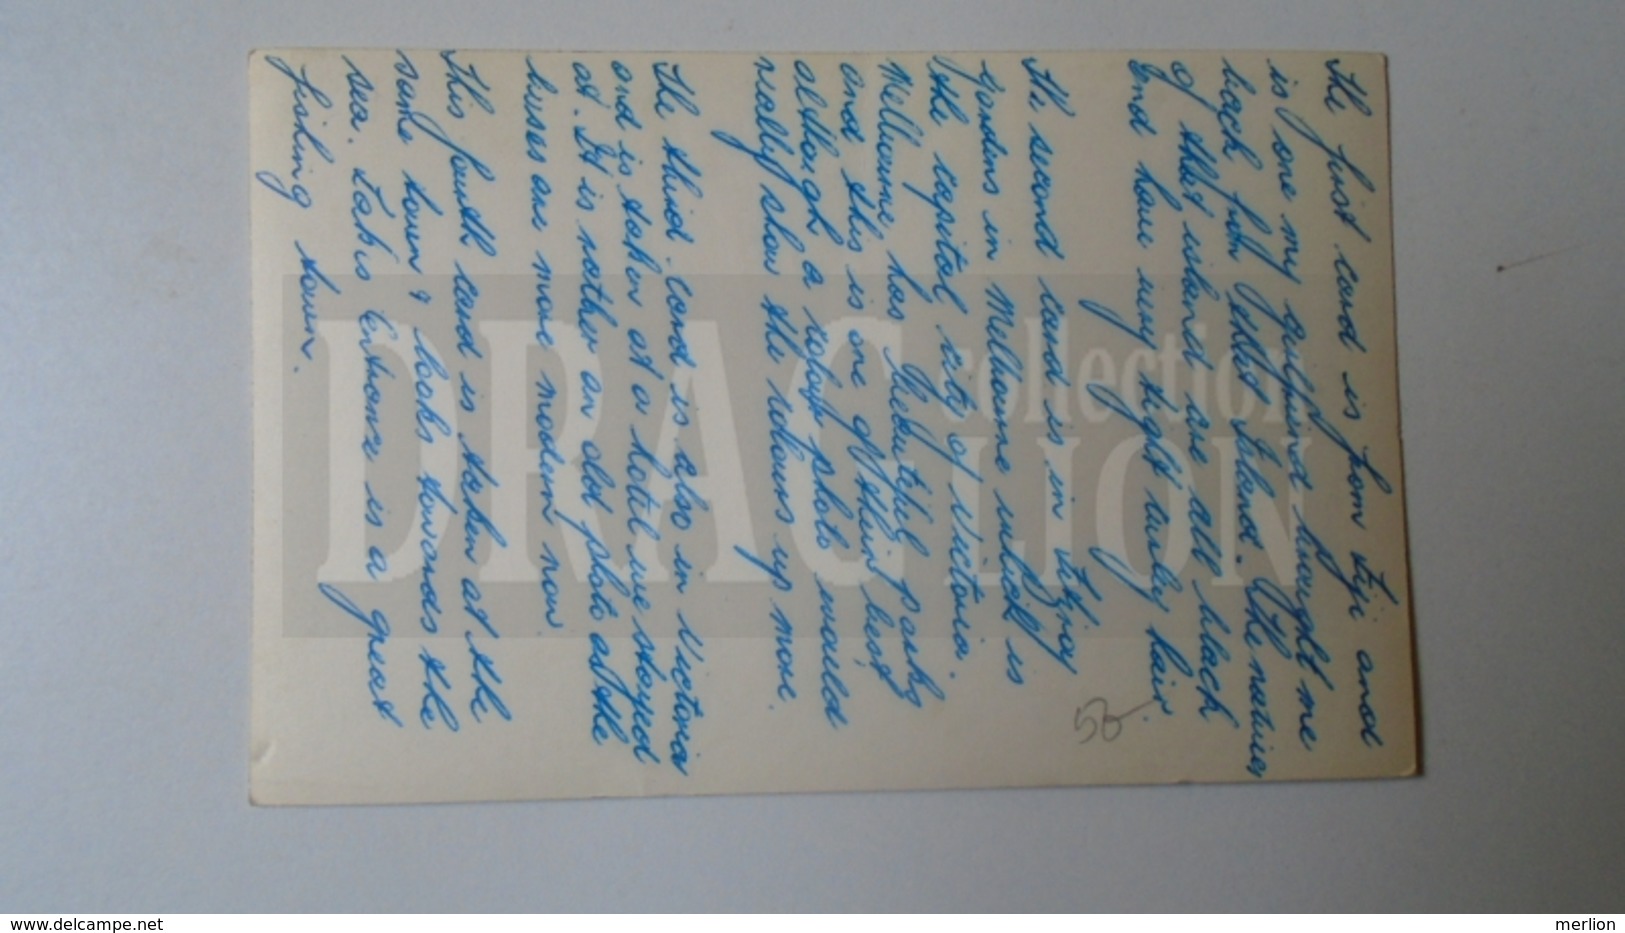 The first card is from Fiji and
is one my girlfriend brought me
back from Island. The natives
of that island are all black
and have very tight curly hair.
The second card is in Fitzroy
gardens in Melbourne which is
the capital city of Victoria.
Melbourne has beautiful parks
and this is one of their best
although a colour photo would
really show the colours up more.
The third card is also in Victoria
and is taken at a hotel we stayed
at. It is rather an old photo as the
buses are more modern now.
This fourth card is taken at the
same town & looks towards the
sea. Lakes Entrance is a great
fishing town.
50
DRAG LION collection
delcampe.net
merlion